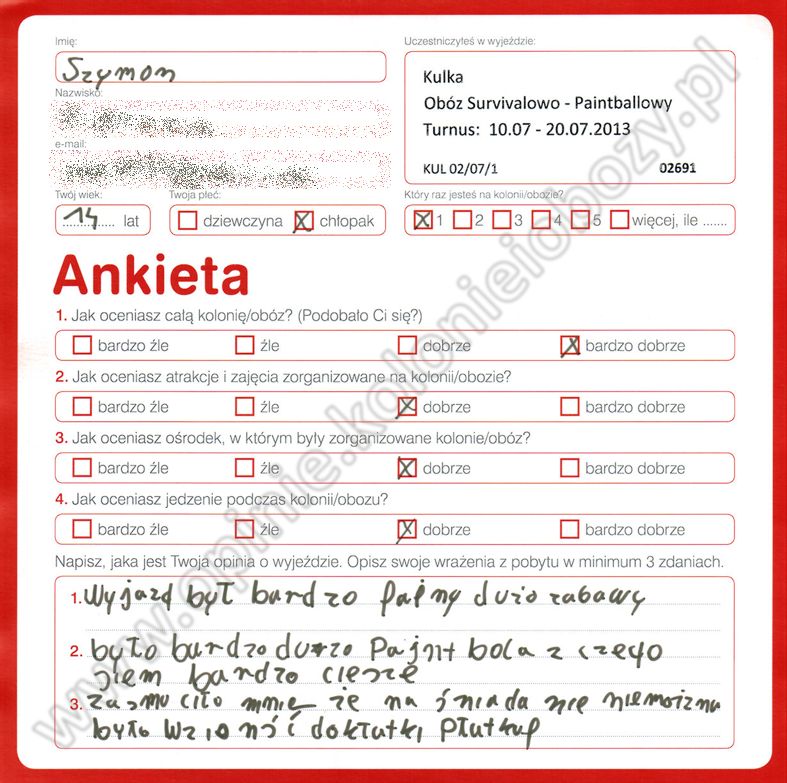 Imię:
Szymon
Uczestniczyłeś w wyjeździe:
Kulka
Obóz Survivalowo - Paintballowy
Turnus: 10.07 - 20.07.2013
KUL 02/07/1 02691
Nazwisko:
e-mail:
Twój wiek:
14 lat
Twoja płeć:
dziewczyna chłopak
Który raz jesteś na kolonii/obozie?
1 2 3 4 5 więcej, ile .......
Ankieta
1. Jak oceniasz całą kolonię/obóz? (Podobało Ci się?)
bardzo źle źle dobrze bardzo dobrze
2. Jak oceniasz atrakcje i zajęcia zorganizowane na kolonii/obozie?
bardzo źle źle dobrze bardzo dobrze
3. Jak oceniasz ośrodek, w którym były zorganizowane kolonie/obóz?
bardzo źle źle dobrze bardzo dobrze
4. Jak oceniasz jedzenie podczas kolonii/obozu?
bardzo źle źle dobrze bardzo dobrze
Napisz, jaka jest Twoja opinia o wyjeździe. Opisz swoje wrażenia z pobytu w minimum 3 zdaniach.
1. Wyjazd był bardzo fajny dużo zabawy
2. było bardzo durzo Pajnt bola z czego
siem bardzo ciesze
3. zasmuciło mnie że na śniada nie niemoizna
było wzionść dokłatki
www.opinie.kolonieiobozy.pl